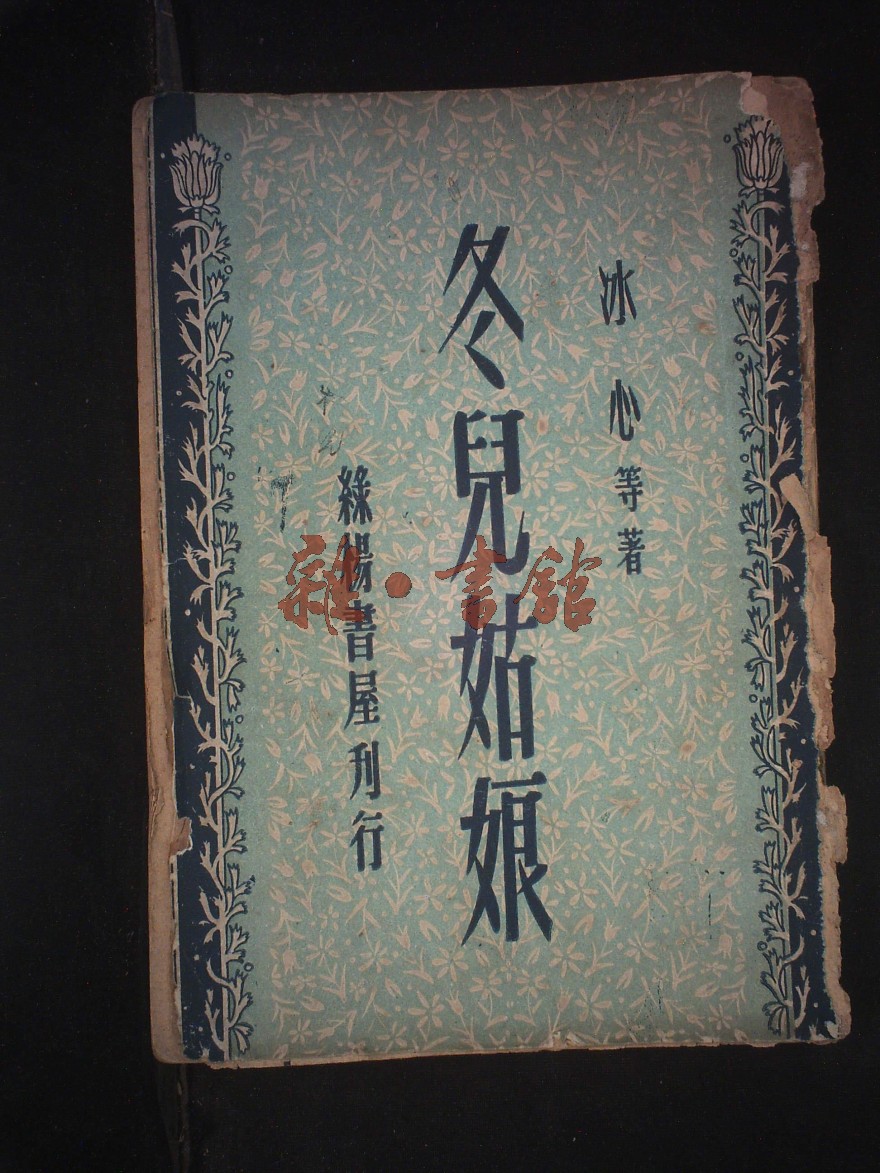 冰心等著
冬兒姑娘
綠楊書屋刊行
雜·書館